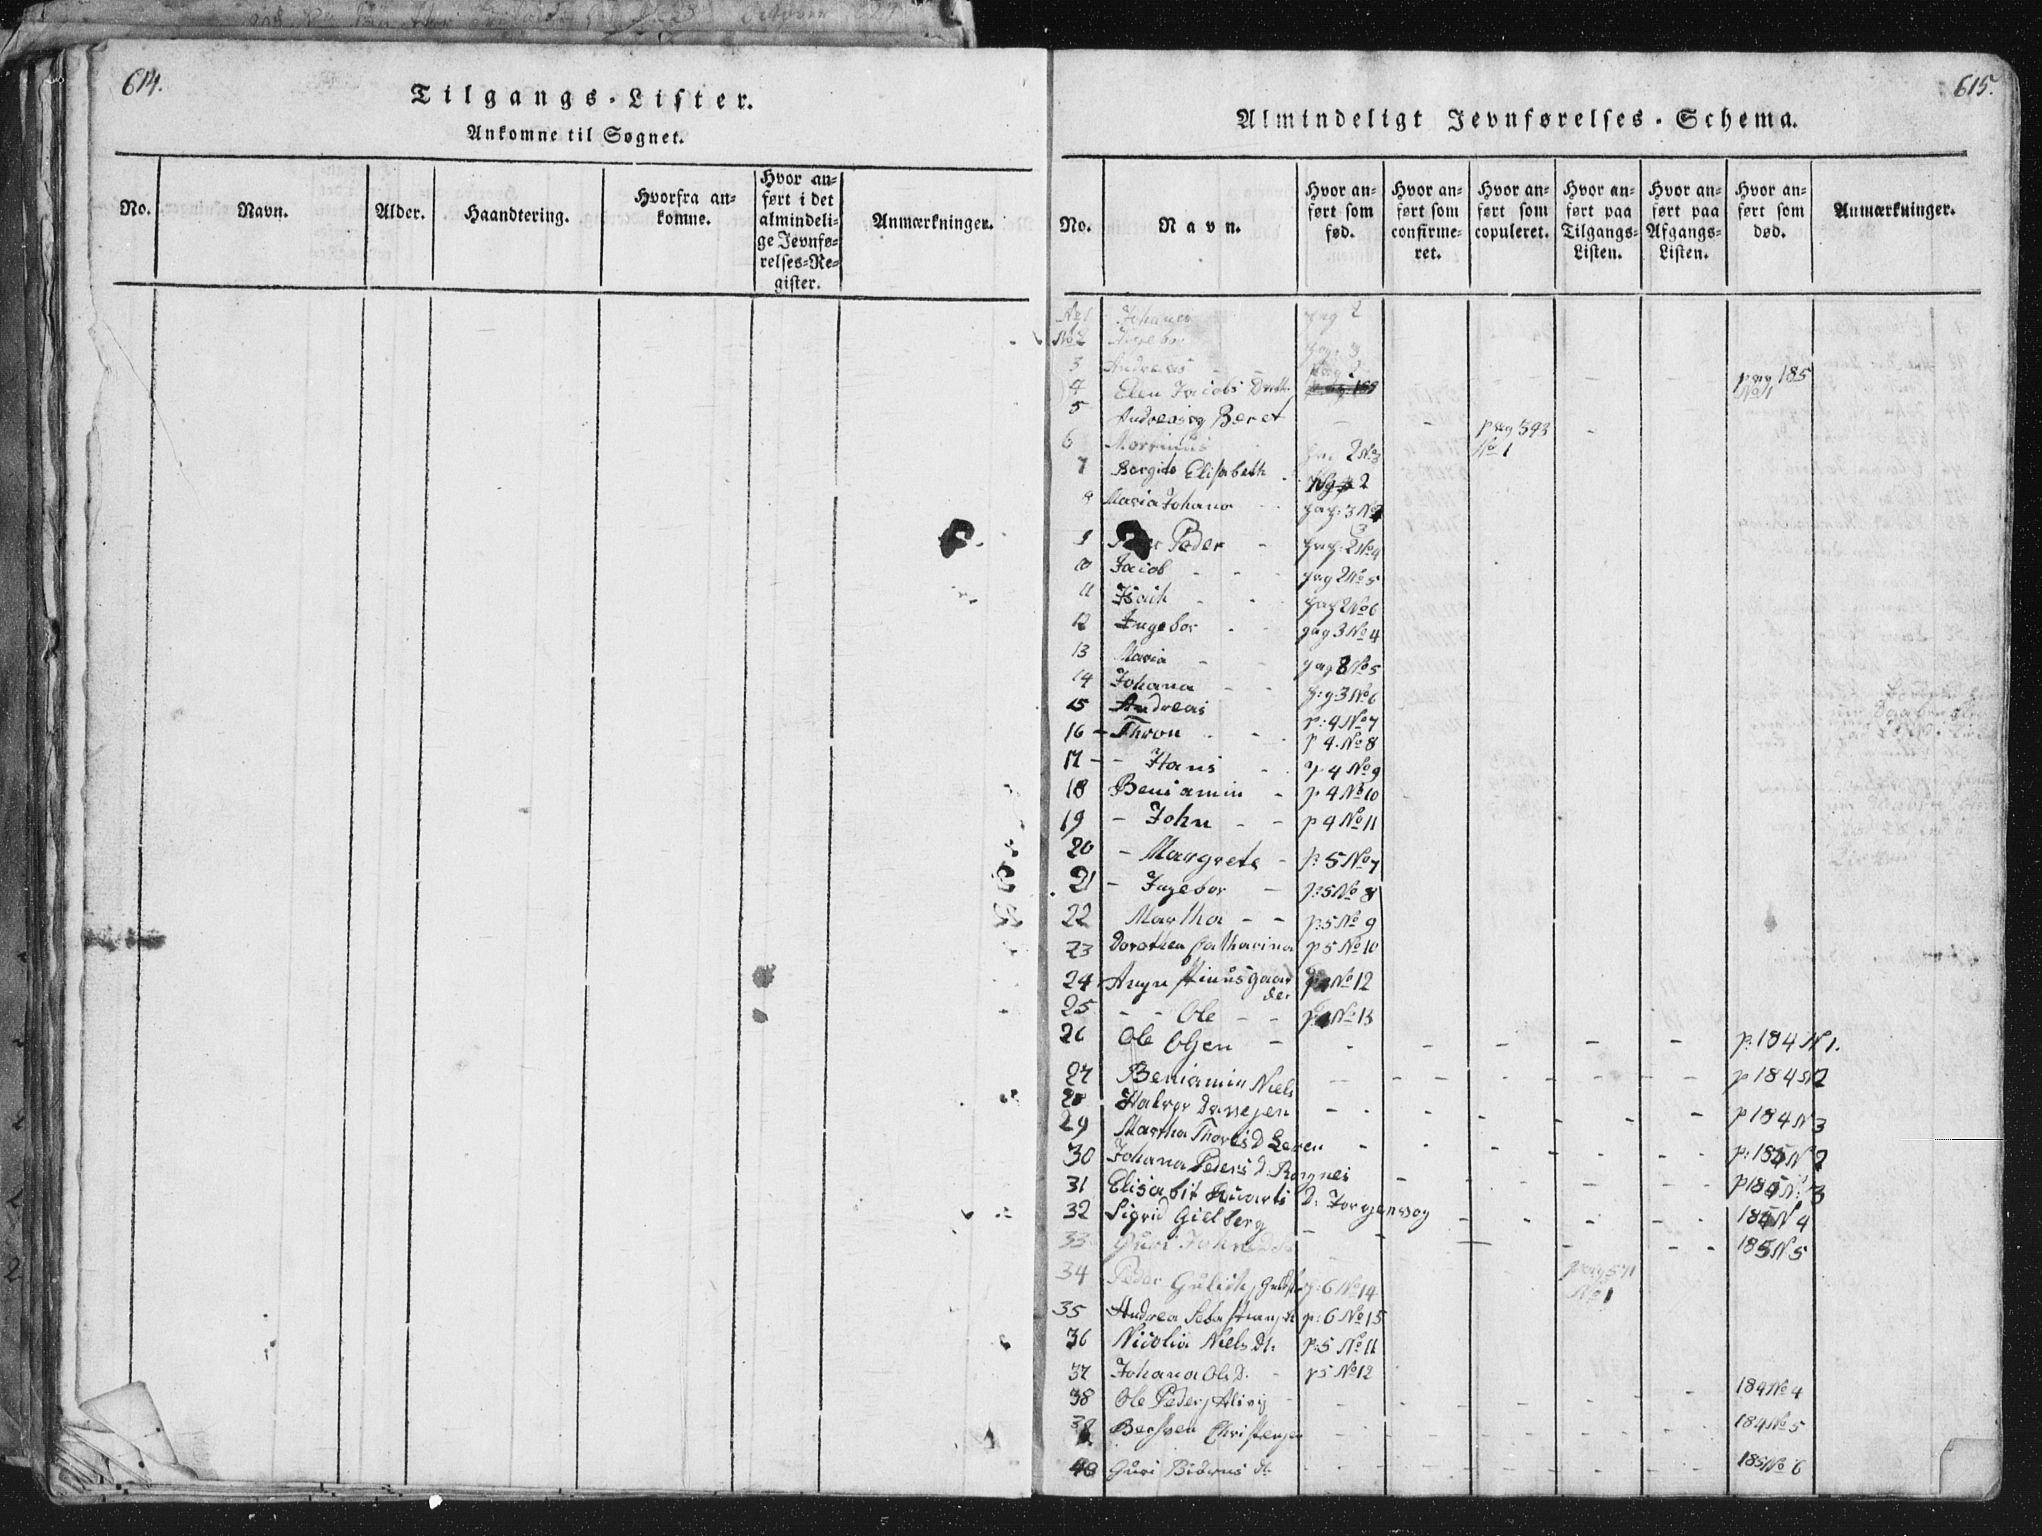 614.
Tilgangs-Lister.
Ankomne til Sognet.
No. Navn. Alder. Haandtering. Hvorfra an-komne. Hvor an-ført i det almindeli-ge Jevnfø-relses-Re-gister. Anmærkninger.
615.
Almindeligt Jevnførelses-Schema.
No. Navn. Hvor an-ført som fød. Hvor an-ført som confirme-ret. Hvor an-ført som copuleret. Hvor an-ført paa Tilgangs-Listen. Hvor an-ført paa Afgangs-Listen. Hvor an-ført som død. Anmærkninger.
No 1 Johanes pag 2
No 2 Ingebor pag 3
3 Andreas pag 2
4 Elen Jacobs Dratt pag 185 No 11
5 Andreas og Beret pag 593 No 1
6 2 No 3
7 Bergite Elisabeth 2
8 Maria Johana pag: 3 No
9 Peder pag: 2 No 4
10 Jacob pag 2 No 5
11 Isach pag 2 No 6
12 Ingebor pag 3 No 4
13 Maria pag 3 No 5
14 Johana p:g 3 No 6
15 Andreas p: 4 No 7
16 - Thron p 4: No 8
17 - - Hans p 4 No 9
18 Beniamin - p 4 No 10
19 - John - - p 4 No 11
20 - Margrete - p: 5 No 7
21 - Ingebor - p: 5 No 8
22 Martha - - p: 5 No 9
23 Dorothea Catharina p 5 No 10
24 No 12
25 - - Ole - - No 13
26 Ole Olsen - p: 184 N 1.
27 Beniamin Niels p 184 N 2
28 Halvor p 184 N 3
29 Martha Thores D Leren p: 185 N 2
30 Johana Peders D. Rognes p 185 N: 3
31 Elisabet D: Jorgensvog 185 N 4
32 Sigrid Gielberg 185 N 5
33 Guri Johns D
34 Peder p: 6 No 14 pag 571 No 1
35 Andrea p: 6 No 15
36 Nicolia Niels Dt: p: 5 No 11
37 Johana Ols D. - p 5 No 12
38 Ole 184 No 4
39 Bersven Christensen 184 No 5
40 Guri 185 No 6